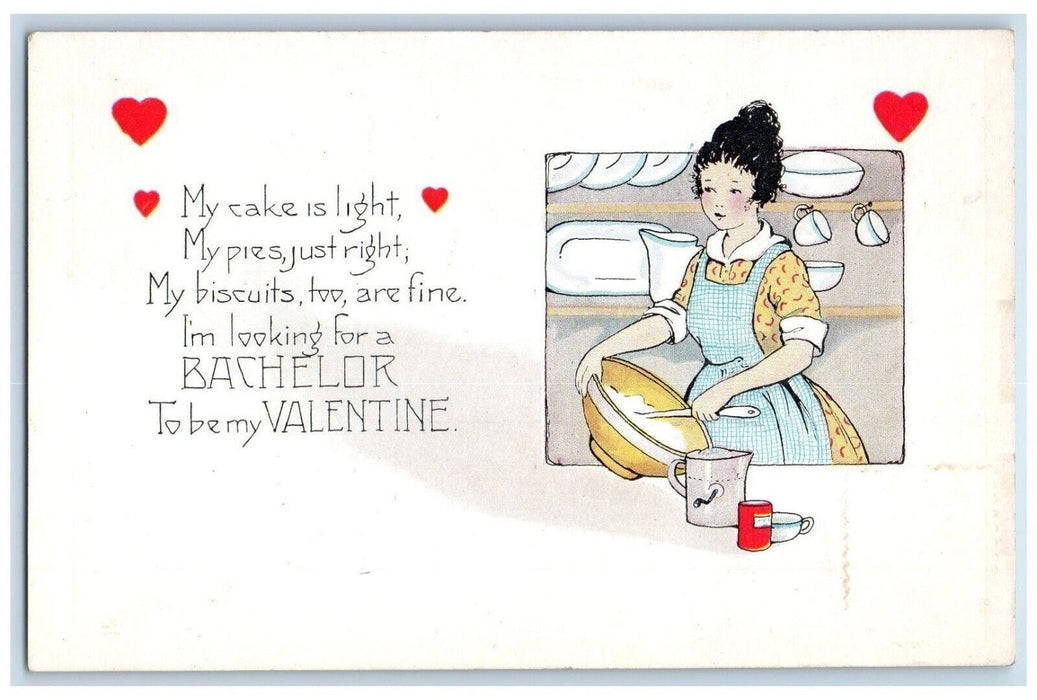 My cake is light,
My pies, just right;
My biscuits, too, are fine.
I'm looking for a
BACHELOR
To be my VALENTINE.